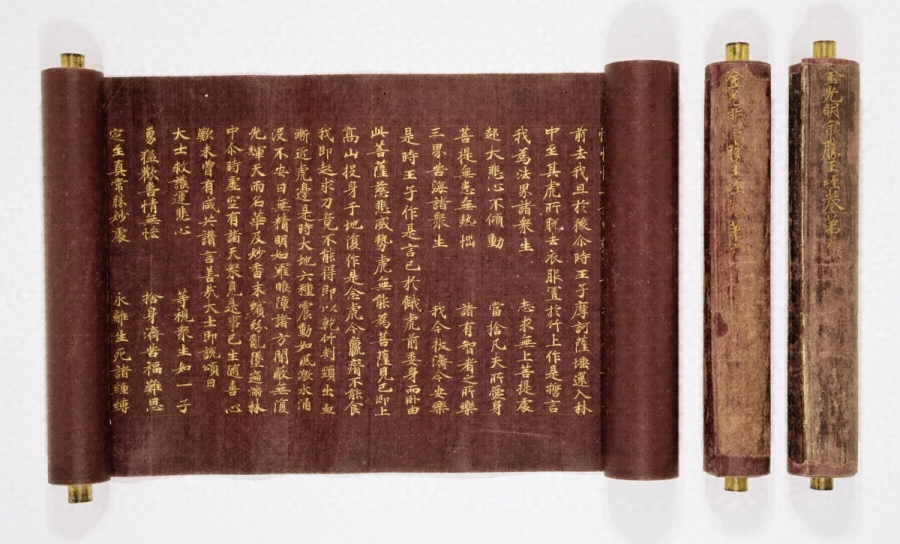 前去我且於後尒時王子摩訶薩埵還入林
中至其虎所脫去衣服置於竹上作是誓言
我為法界諸衆生 志求無上菩提處
起大悲心不傾動 當捨凡夫所愛身
菩提無患無熱惱 諸有智者之所樂
三界苦海諸衆生 我今拔濟令安樂
是時王子作是言已於餓虎前委身而卧由
此菩薩慈悲威勢虎無能為菩薩見已即上
高山投身于地復作是念虎今羸瘦不能食
我即起求刀竟不能得即以乾竹刺頸出血
漸近虎邊是時大地六種震動如風激水涌
沒不安日無精明如羅睺障諸方闇蔽無復
光輝天雨名華及妙香末繽紛亂墜遍滿林
中尒時虛空有諸天衆見是事已生随喜心
歎未曾有咸共讃言善哉大士即說頌曰
大士救護運悲心 等視衆生如一子
勇猛歡喜情無悋 捨身濟苦福難思
定至真常勝妙處 永離生死諸纏縛
金光明最勝王經卷第
金光明最勝王經卷第